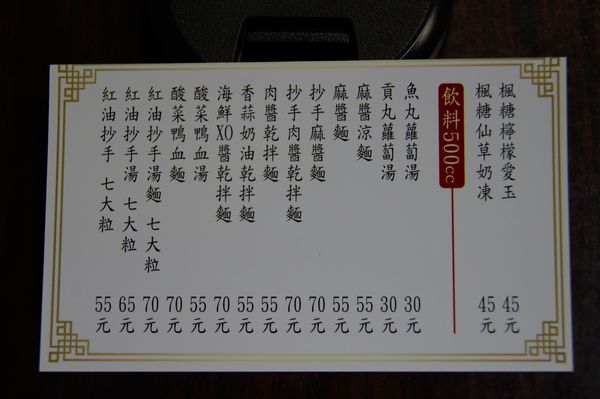 楓糖檸檬愛玉 45元
楓糖仙草奶凍 45元
飲料500cc
魚丸蘿蔔湯 30元
貢丸蘿蔔湯 30元
麻醬涼麵 55元
麻醬麵 55元
抄手麻醬麵 70元
抄手肉醬乾拌麵 70元
肉醬乾拌麵 55元
香蒜奶油乾拌麵 55元
海鮮XO醬乾拌麵 70元
酸菜鴨血湯 55元
酸菜鴨血麵 70元
紅油抄手湯麵 七大粒 70元
紅油抄手湯 七大粒 65元
紅油抄手 七大粒 55元